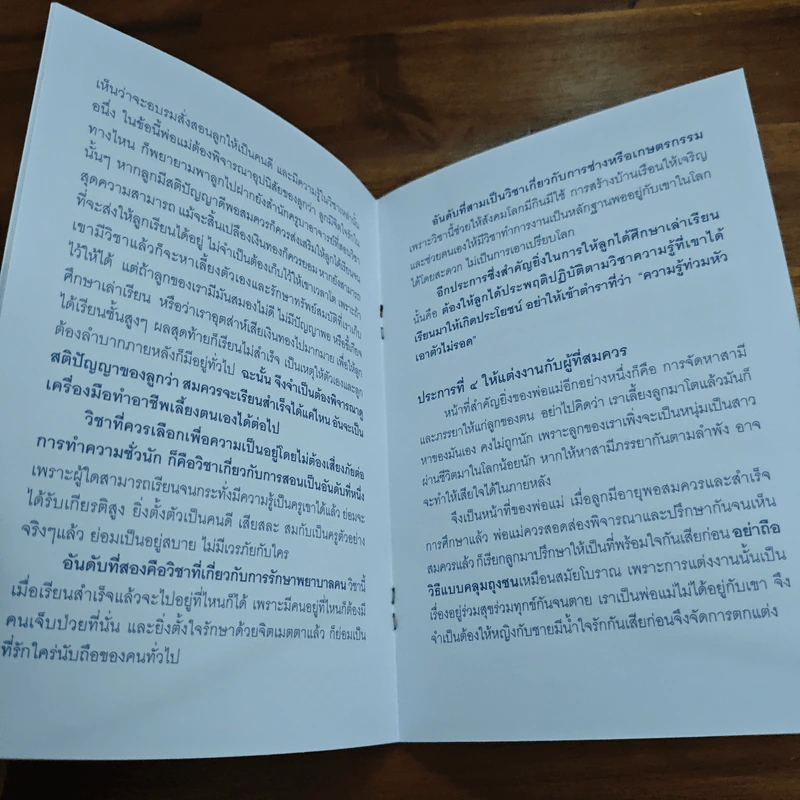 เห็นว่าจะอบรมสั่งสอนลูกให้เป็นคนดี และมีความรู้ในวิชาเหล่านั้น
อนึ่ง ในข้อนี้พ่อแม่ต้องพิจารณาอุปนิสัยของลูกว่า ลูกมีจิตใจรักใน
ทางไหน ก็พยายามพาลูกไปฝากยังสำนักครูบาอาจารย์ที่สอนวิชา
นั้นๆ หากลูกมีสติปัญญาดีพอสมควรก็ควรส่งเสริมให้ลูกได้เรียนจน
สุดความสามารถ แม้จะสิ้นเปลืองเงินทองก็ควรยอม หากยังสามารถ
ที่จะส่งให้ลูกเรียนได้อยู่ ไม่จำเป็นต้องเก็บไว้ให้เขาเวลาใด เพราะถ้า
เขามีวิชาแล้วก็จะหาเลี้ยงตัวเองและรักษาทรัพย์สมบัติที่เราเก็บ
ไว้ให้ได้ แต่ถ้าลูกของเรามีมันสมองไม่ดี ไม่มีปัญญาพอ หรือขี้เกียจ
ศึกษาเล่าเรียน หรือว่าเราอุตส่าห์เสียเงินทองไปมากมาย เพื่อให้ลูก
ได้เรียนชั้นสูงๆ ผลสุดท้ายก็เรียนไม่สำเร็จ เป็นเหตุให้ตัวเองและลูก
ต้องลำบากภายหลังก็มีอยู่ทั่วไป ฉะนั้น จึงจำเป็นต้องพิจารณาดู
สติปัญญาของลูกว่า สมควรจะเรียนสำเร็จได้แค่ไหน อันจะเป็น
เครื่องมือทำอาชีพเลี้ยงตนเองได้ต่อไป
วิชาที่ควรเลือกเพื่อความเป็นอยู่โดยไม่ต้องเสี่ยงภัยต่อ
การทำความชั่วนัก ก็คือวิชาเกี่ยวกับการสอนเป็นอันดับที่หนึ่ง
เพราะผู้ใดสามารถเรียนจนกระทั่งมีความรู้เป็นครูเขาได้แล้ว ย่อมจะ
ได้รับเกียรติสูง ยิ่งตั้งตัวเป็นคนดี เสียสละ สมกับเป็นครูตัวอย่าง
จริงๆแล้ว ย่อมเป็นอยู่สบาย ไม่มีเวรภัยกับใคร
อันดับที่สองคือวิชาที่เกี่ยวกับการรักษาพยาบาลคน วิชานี้
เมื่อเรียนสำเร็จแล้วจะไปอยู่ที่ไหนก็ได้ เพราะมีคนอยู่ที่ไหนก็ต้องมี
คนเจ็บป่วยที่นั่น และยิ่งตั้งใจรักษาด้วยจิตเมตตาแล้ว ก็ย่อมเป็น
ที่รักใคร่นับถือของคนทั่วไป
อันดับที่สามเป็นวิชาเกี่ยวกับการช่างหรือเกษตรกรรม
เพราะวิชานี้ช่วยให้สังคมโลกมีกินมีใช้ การสร้างบ้านเรือนให้เจริญ
และช่วยตนเองให้มีวิชาทำการงานเป็นหลักฐานพออยู่กับเขาในโลก
ได้โดยสะดวก ไม่เป็นการเอาเปรียบโลก
อีกประการซึ่งสำคัญยิ่งในการให้ลูกได้ศึกษาเล่าเรียน
นั้นคือ ต้องให้ลูกได้ประพฤติปฏิบัติตามวิชาความรู้ที่เขาได้
เรียนมาให้เกิดประโยชน์ อย่าให้เข้าตำราที่ว่า “ความรู้ท่วมหัว
เอาตัวไม่รอด”
ประการที่ ๔ ให้แต่งงานกับผู้ที่สมควร
หน้าที่สำคัญยิ่งของพ่อแม่อีกอย่างหนึ่งก็คือ การจัดหาสามี
และภรรยาให้แก่ลูกของตน อย่าไปคิดว่า เราเลี้ยงลูกมาโตแล้วมันก็
หาของมันเอง คงไม่ถูกนัก เพราะลูกของเราเพิ่งจะเป็นหนุ่มเป็นสาว
ผ่านชีวิตมาในโลกน้อยนัก หากให้หาสามีภรรยากันตามลำพัง อาจ
จะทำให้เสียใจได้ในภายหลัง
จึงเป็นหน้าที่ของพ่อแม่ เมื่อลูกมีอายุพอสมควรและสำเร็จ
การศึกษาแล้ว พ่อแม่ควรสอดส่องพิจารณาและปรึกษากันจนเห็น
สมควรแล้ว ก็เรียกลูกมาปรึกษาให้เป็นที่พร้อมใจกันเสียก่อน อย่าถือ
วิธีแบบคลุมถุงชนเหมือนสมัยโบราณ เพราะการแต่งงานนั้นเป็น
เรื่องอยู่ร่วมสุขร่วมทุกข์กันจนตาย เราเป็นพ่อแม่ไม่ได้อยู่กับเขา จึง
จำเป็นต้องให้หญิงกับชายมีน้ำใจรักกันเสียก่อนจึงจัดการตกแต่ง